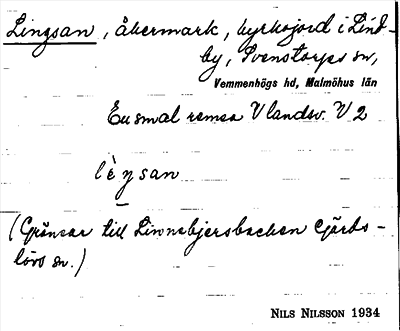 Lingsan, åkermark, kyrkojord i Lind-
by, Svenstorps sn,
Vemmenhögs hd, Malmöhus län
En smal remsa V landsv. V 2
lèŋsan
(Gränsar till Linnebjersbacken Gärds-
lövs sn.)
NILS NILSSON 1934